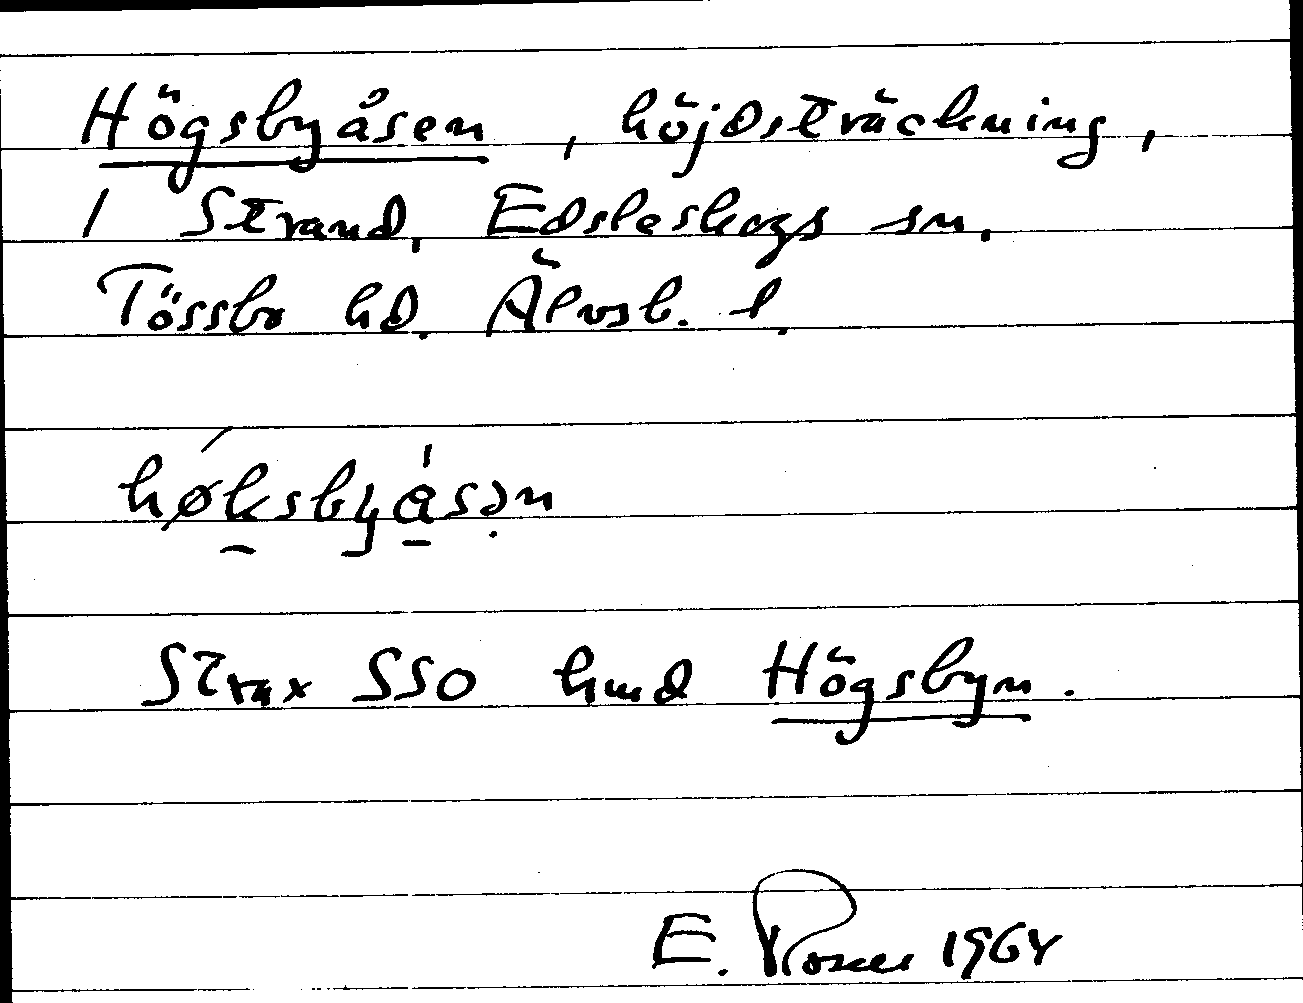 Högsbyåsen, höjdsträckning,
1 Strand, Edsleskogs sn.
Tössbo hd. Älvsb. l.
høksbyåsən
Strax SSO hmd Högsbyn.
E. Rosell 1964